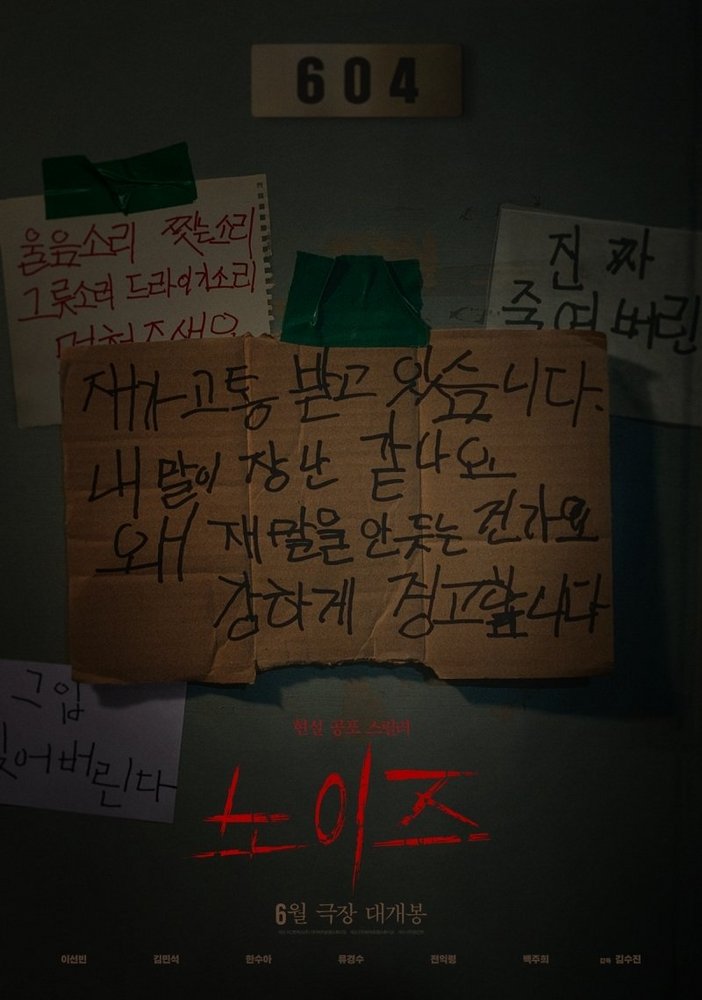 604
울음소리 찢는소리
그릇소리 드라이기소리
멈춰주세요
진짜
죽여버린
재가 고통 받고 있습니다.
내 말이 장난 같나요
왜 재 말을 안 듣는 건가요
강하게 경고합니다
그 입
찢어버린다
현실 공포 스릴러
노이즈
6월 극장 대개봉
이선빈 김민석 한수아 류경수 전익령 백주희 감독 김수진